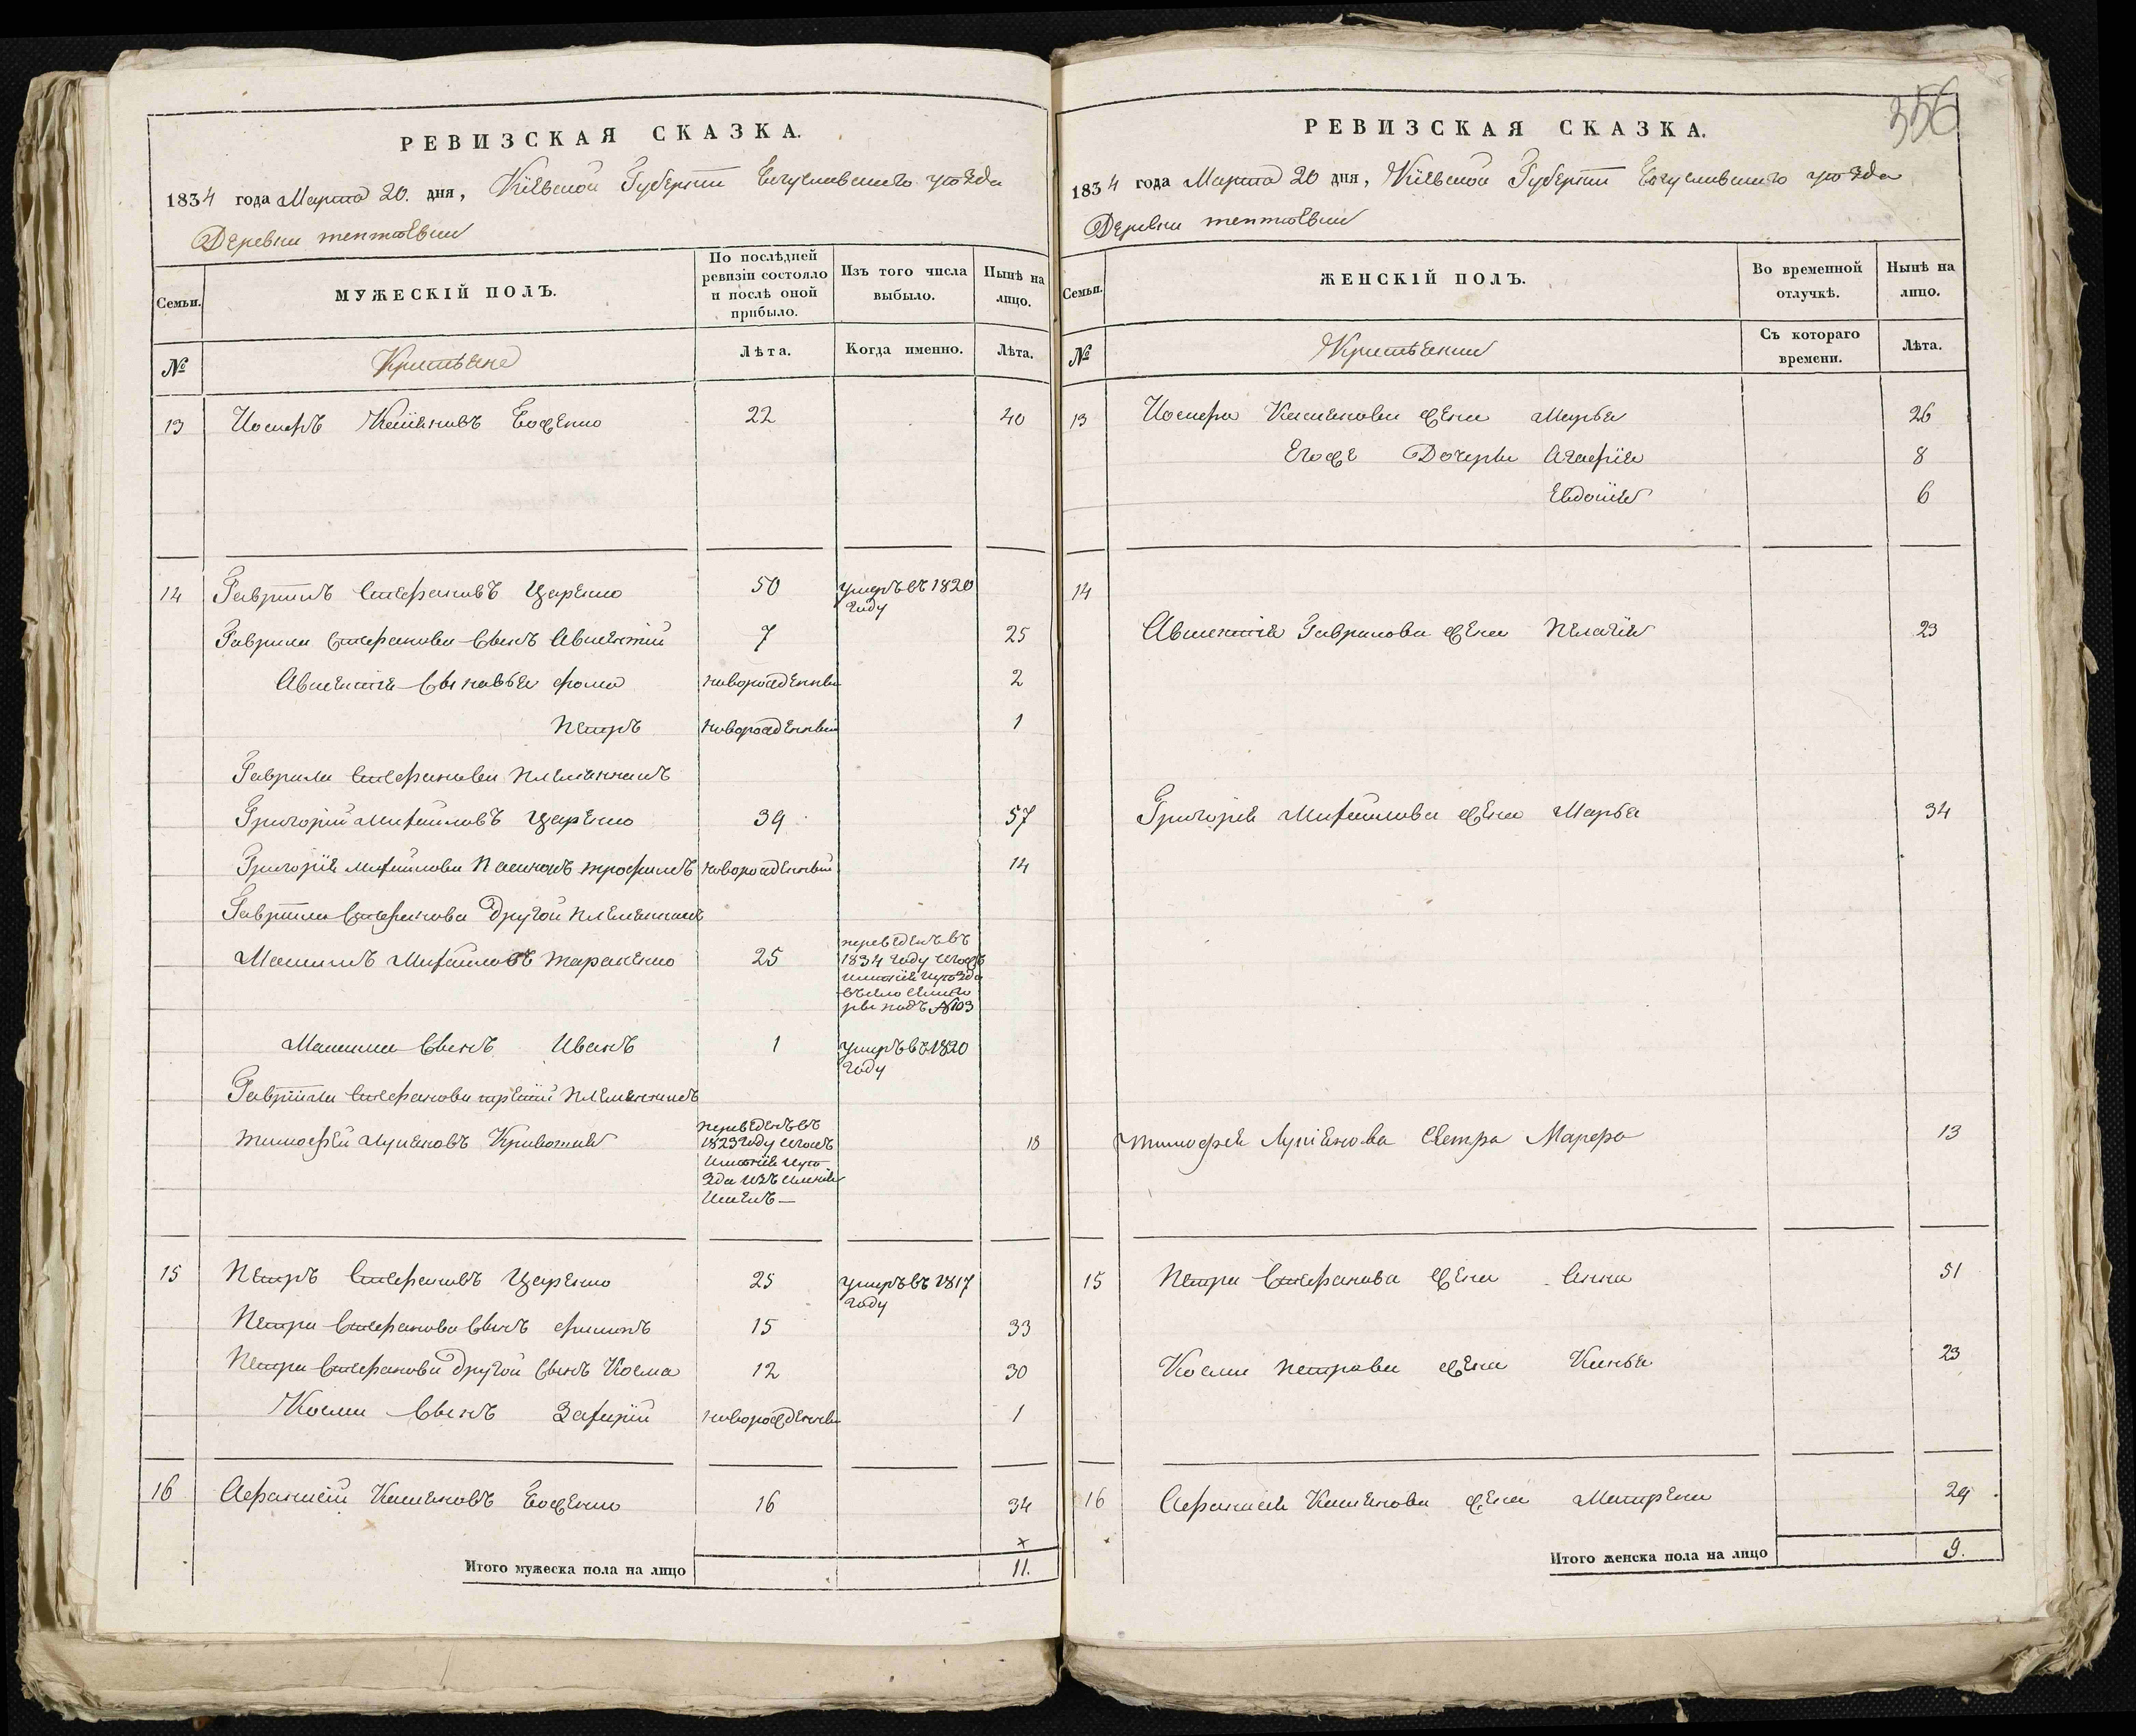 РЕВИЗСКАЯ СКАЗКА.
1834 года Марта 20. дня, Кіевской Губерніи Богуславскаго уѣзда
Деревни
Семьи.
МУЖЕСКІЙ ПОЛЪ.
По послѣдней ревизіи состояло и послѣ оной прибыло.
Изъ того числа выбыло.
Нынѣ на лицо.
№
Крестьяне
Лѣта.
Когда именно.
Лѣта.
13 Іосифъ Касіяновъ 22 40
14 Гаврилъ Стефановъ Царенко 50 умеръ въ 1820 году
Гаврила Стефанова Сынъ Авксентий 7 25
Авксентія Сыновья Фома новорожденны 2
Петръ новорожденный 1
Гаврила Стефанова племянникъ
Григорій Михайловъ Царенко 39 57
Григорія Михайлова Пасинокъ Трофимъ новорожденный 14
Гаврила Стефанова другой племянникъ
Максимъ Михайловъ Тараненко 25 переведенъ въ
1834 году
подъ №103
Максима Сынъ Иванъ 1 умеръ въ 1820
году
Гаврила Стефанова третій племянникъ
Тимофей Лукіановъ 18
переведенъ въ
1823 году
15 Петръ Стефановъ Царенко 25 умеръ въ 1817
году
Петра Стефанова Сынъ Филипъ 15 33
Петра Стефанова другой Сынъ Косма 12 30
Космы Сынъ Захарій новорожденны 1
16 Афанасій Касіяновъ 16 34
х
Итого мужеска пола на лицо 11.
356
РЕВИЗСКАЯ СКАЗКА.
1834 года Марта 20 дня, Кіевской Губерніи Богуславскаго уѣзда
Деревни
Семьи.
ЖЕНСКІЙ ПОЛЪ.
Во временной отлучкѣ.
Нынѣ на лицо.
№
Крестьянки
Съ котораго времени.
Лѣта.
13 Іосифа Касіянова жена Марья 26
Егоже Дочери Агафія 8
Евдокія 6
14
Авксентія Гаврилова жена Пелагія 23
Григорія Михайлова жена Марья 34
Тимофея Лукіянова Сестра Марфа 13
15 Петра Стефанова жена Анна 51
Космы Петрова жена 23
16 Афанасія Касіянова жена Матрена 29
Итого женска пола на лицо 9.